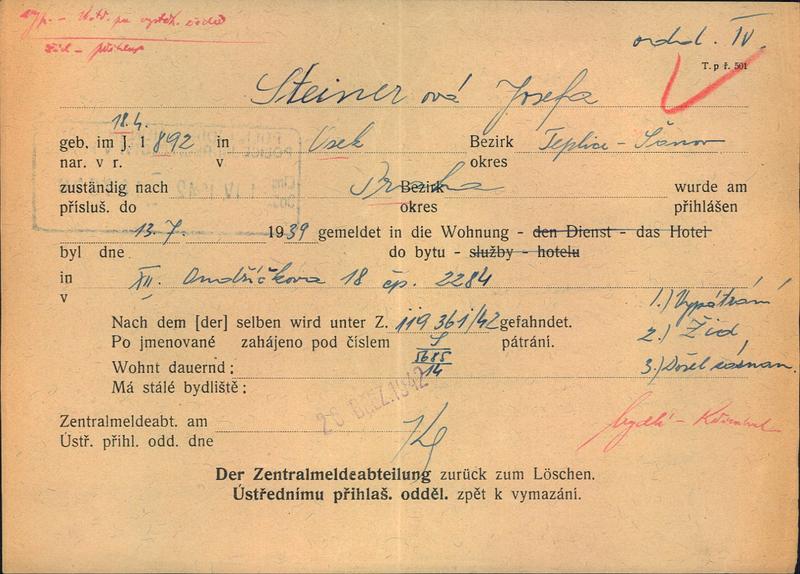 ordd. IV.
T. p ř. 501
Steiner ová Josefa
18.4.
geb. im J. 1 892 in Osek Bezirk Teplice - Šanov
nar. v r. v okres
zuständig nach Praha Bezirk wurde am
přísluš. do okres přihlášen
13.7. 1939 gemeldet in die Wohnung - den Dienst - das Hotel
byl dne do bytu - služby - hotelu
in XII. Ondříčkova 18 čp. 2284
v
1.) Vypátrání
Nach dem [der] selben wird unter Z. 119 361/42 gefahndet.
2.) Žid
Po jmenované zahájeno pod číslem S pátrání.
5685
14
3.) Došel
Wohnt dauernd :
Má stálé bydliště :
BŘEZ. 1942
Zentralmeldeabt. am
Ústř. přihl. odd. dne
bydlí -
Der Zentralmeldeabteilung zurück zum Löschen.
Ústřednímu přihlaš. odděl. zpět k vymazání.